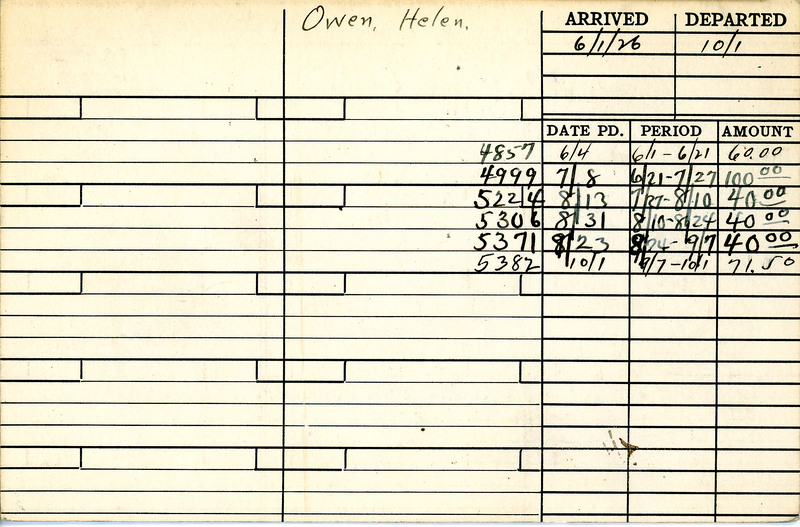 Owen, Helen.
ARRIVED DEPARTED
6/1/26 10/1
DATE PD. PERIOD AMOUNT
4857 6/4 6/1-6/21 60.00
4999 7/8 6/21-7/27 100 00
5224 8/13 7/27-8/10 40.00
5306 8/31 8/10-8/24 40 00
5371 8/23 8/24-9/7 40 00
5382 10/1 9/7-10/1 71.50